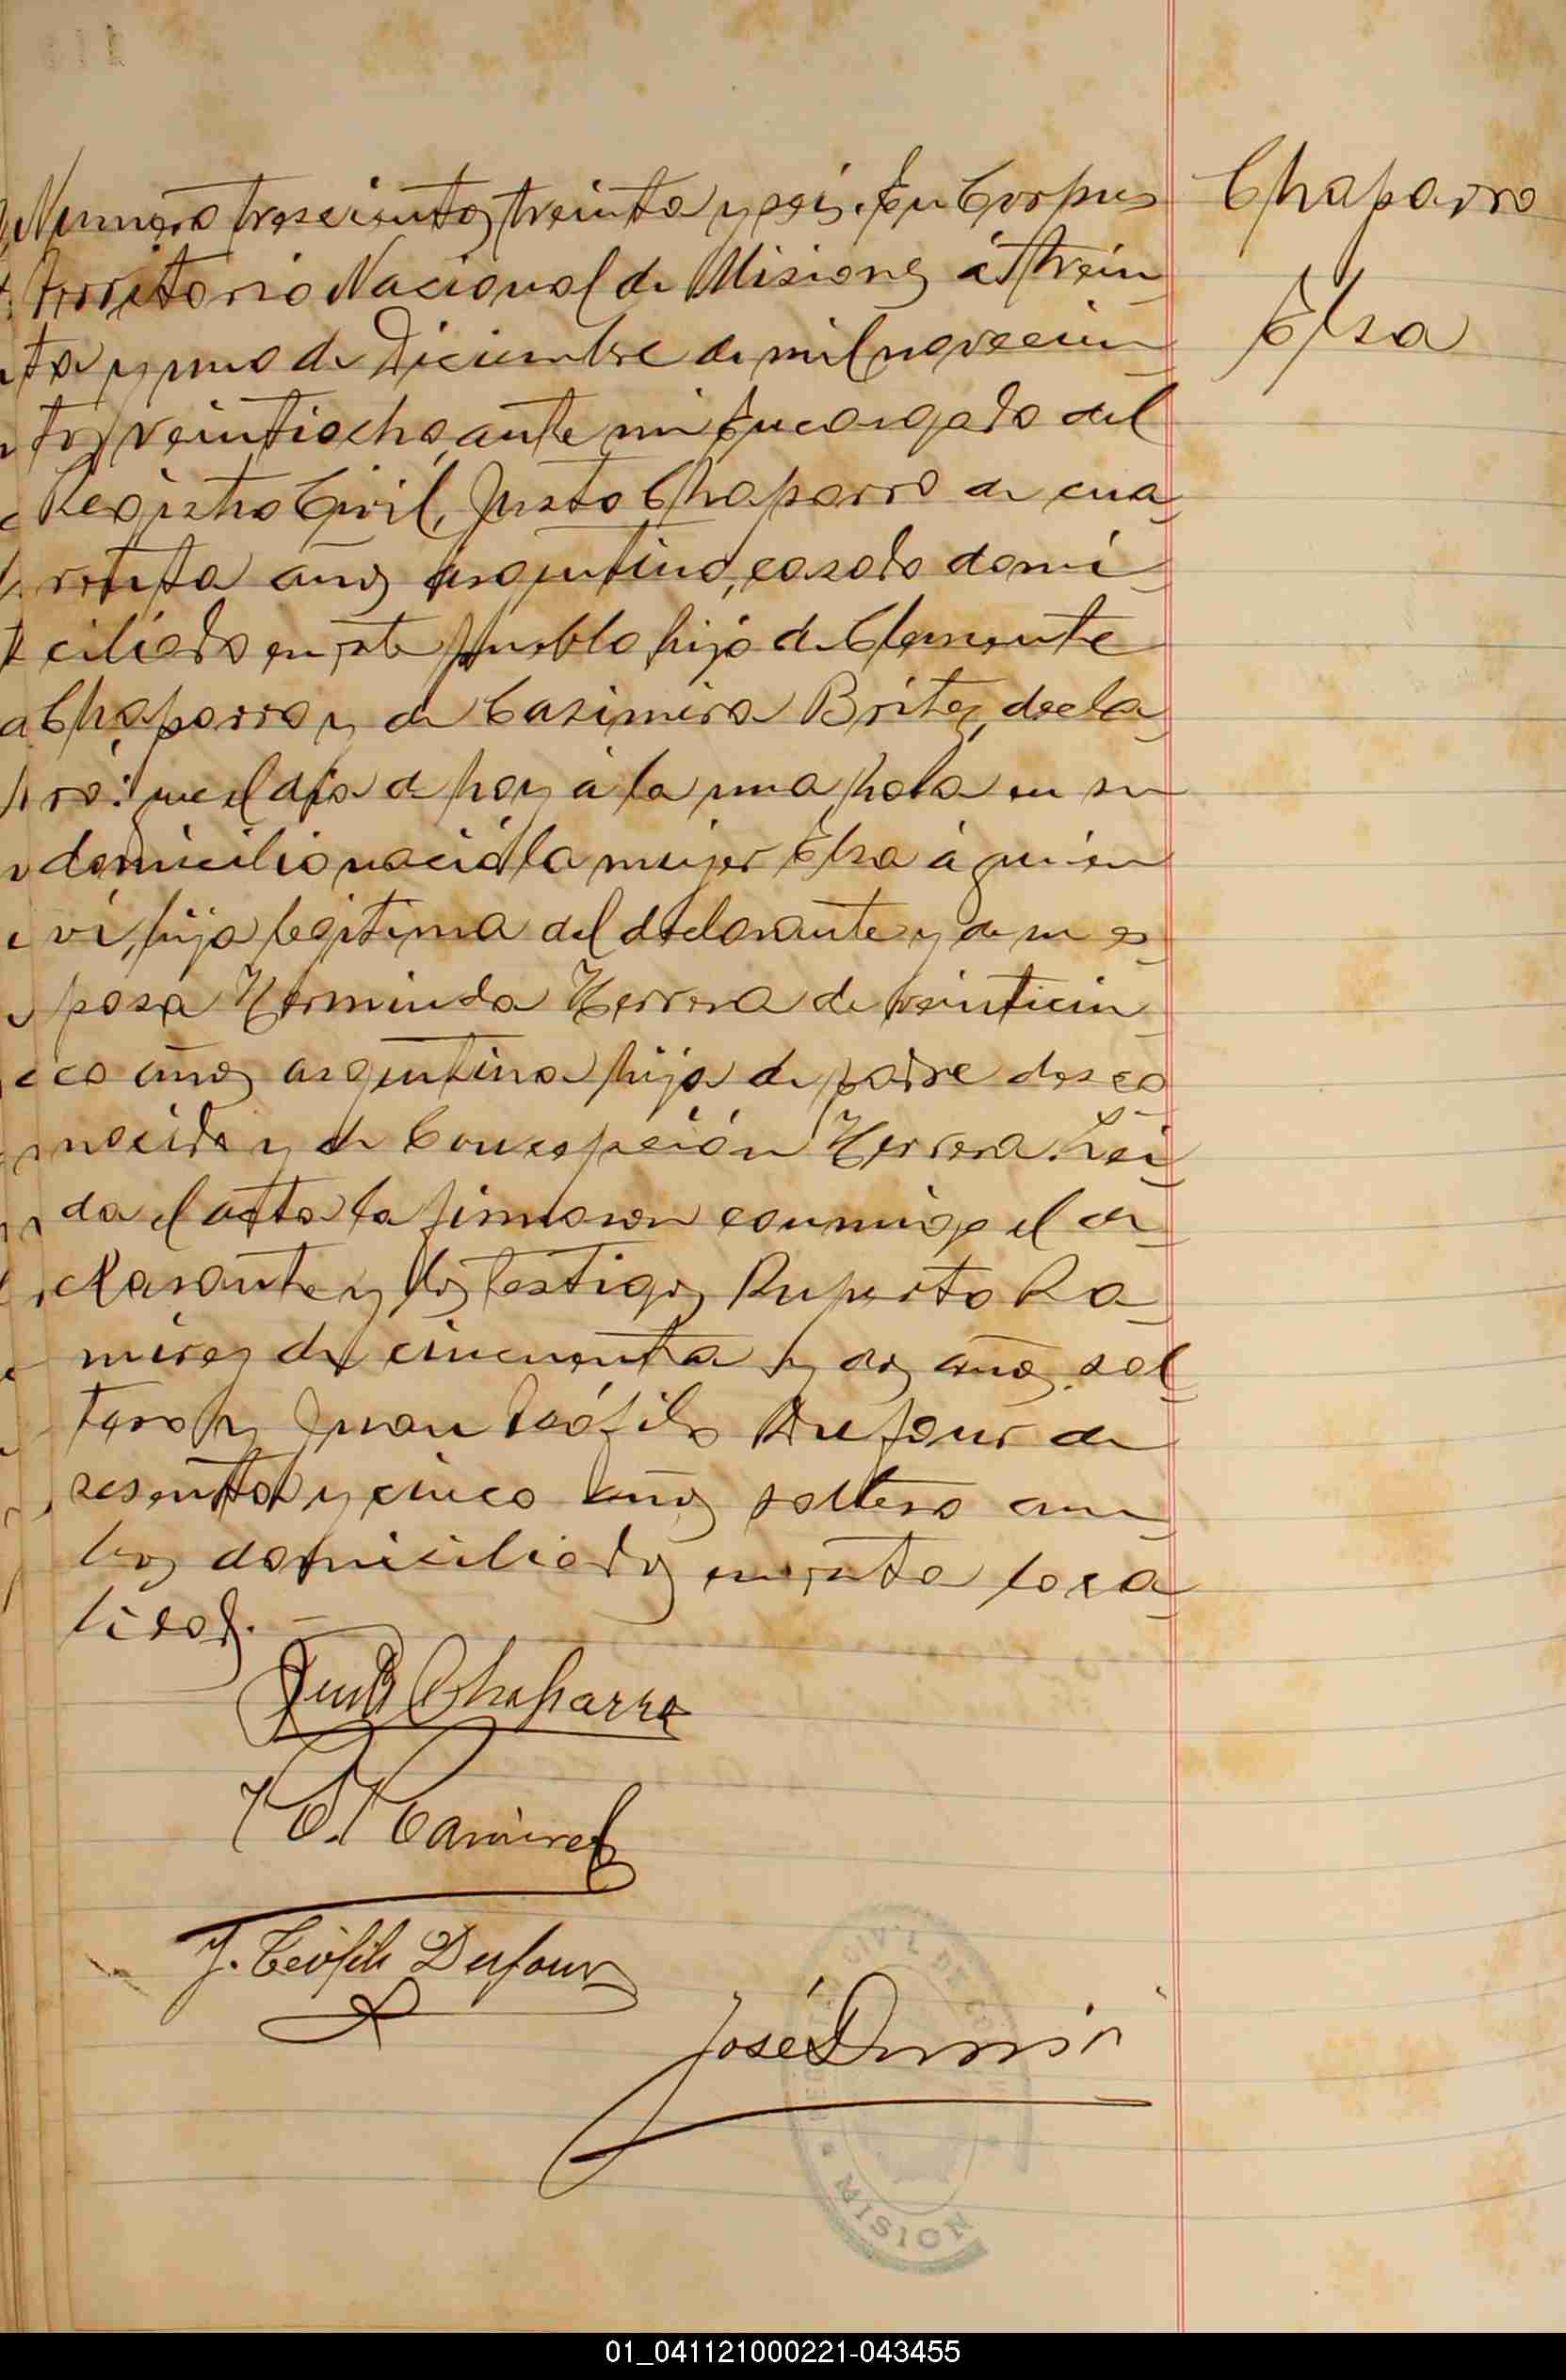 Chaparro
Elsa
Número trescientos treinta y seis. En Corpus
Territorio Nacional de Misiones á trein
ta y uno de Diciembre de mil novecien
tos veintiocho, ante mi Encargado del
Registro Civil, Justo Chaparro de cua
renta años argentino, casado domi
ciliado en este pueblo hijo de Clemente
Chaparro y de Casimira Britez, decla
ró: que el día de hoy á la una hora en su
domicilio nació la mujer Elsa á quien
ví, hija legitima del declarante y de su es
posa Herminda Herrera de veinticin
co años argentina hija de padre desco
nocido y de Concepción Herrera. Lei
da el acta la firmaron conmigo el de
clarante y los testigos Ruperto Ra
mirez de cincuenta y dos años, sol
tero y Juan Teófilo Dufour de
sesenta y cinco años soltero am
bos domiciliados en esta loca
lidad.
Justo Chaparro
Ramirez
J. Teófilo Dufour
José
CIVIL DE CORPUS
MISION
01_041121000221-043455